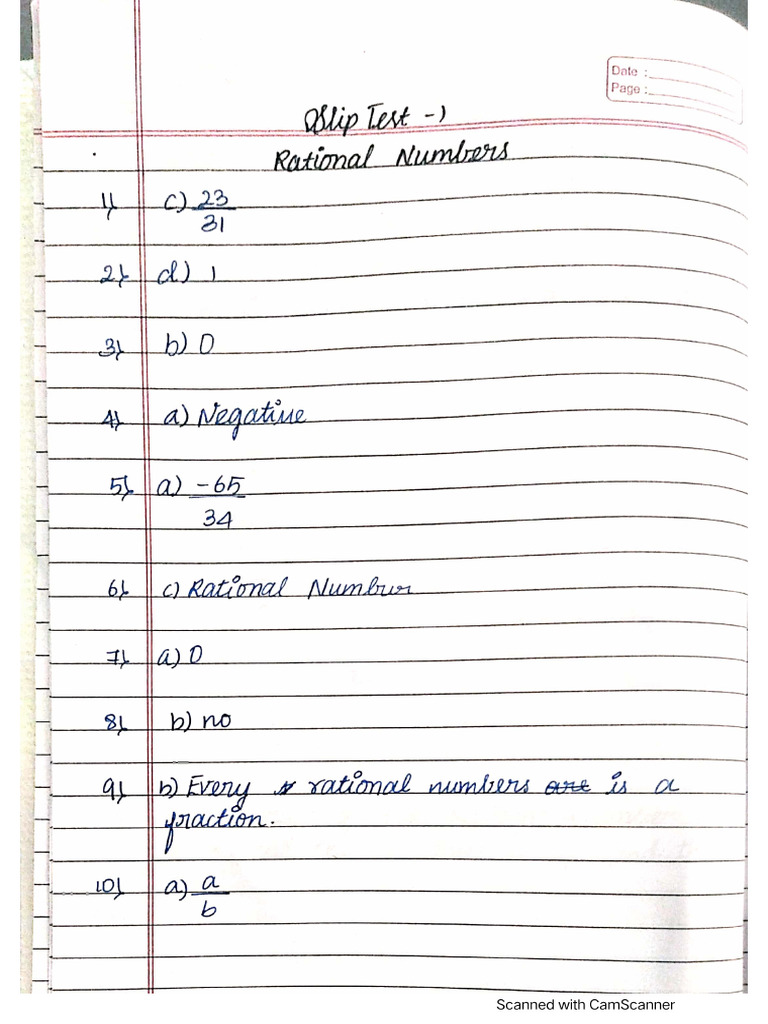 Date :
Page :
Slip Test -1
Rational Numbers
1) c) 23/31
2) d) 1
3) b) 0
4) a) Negative
5) a) -65/34
6) c) Rational Number
7) a) 0
8) b) no
9) b) Every rational numbers are is a
fraction.
10) a) a/b
Scanned with CamScanner